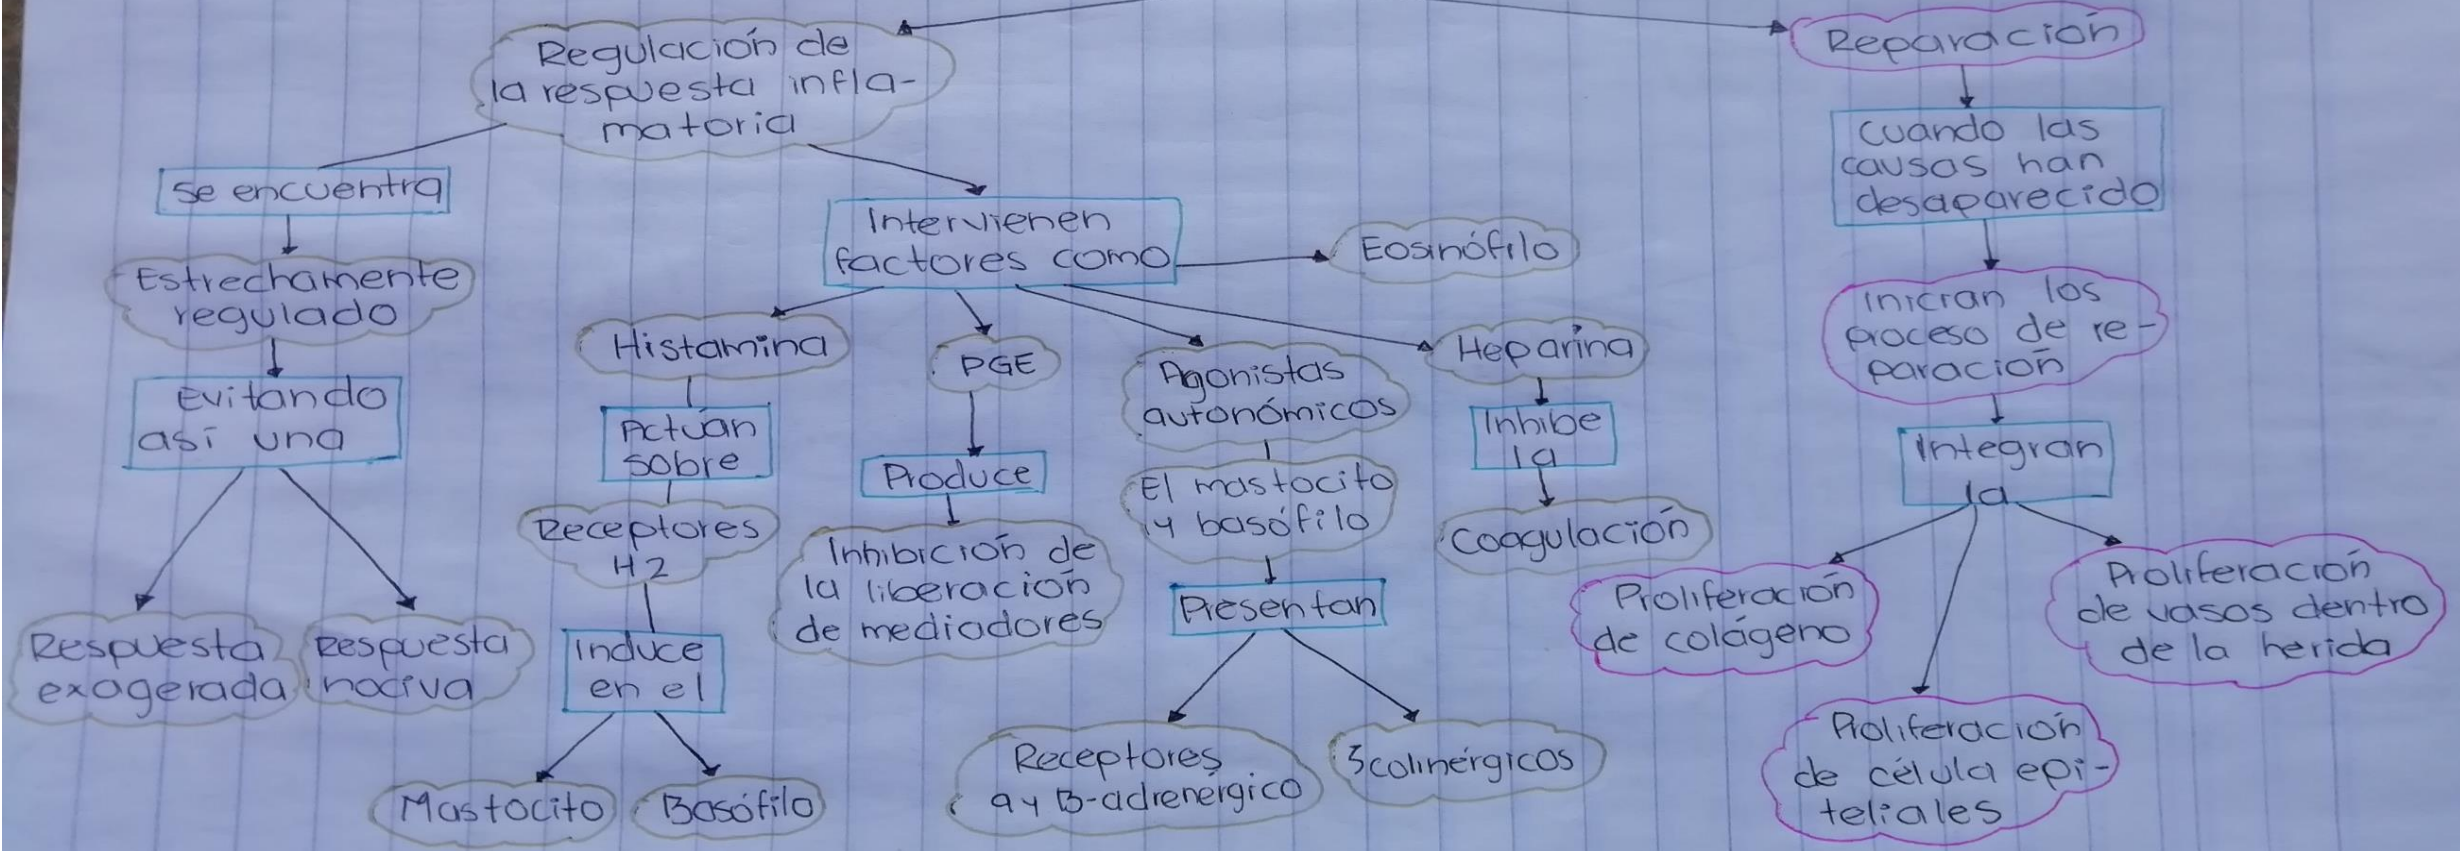 Regulación de
la respuesta infla-
matoria
se encuentra
Estrechamente
regulado
evitando
así una
Respuesta
exagerada
Respuesta
nociva
Intervienen
factores como
Eosinófilo
Histamina
Actúan
sobre
Receptores
H2
Induce
en el
Mastocito
Basófilo
PGE
Produce
Inhibición de
la liberación
de mediadores
Agonistas
autonómicos
El mastocito
y basófilo
Presentan
Receptores
a y B-adrenergico
colinérgicos
Heparina
Inhibe
la
Coagulación
Reparación
cuando las
causas han
desaparecido
Inician los
proceso de re-
paración
Integran
la
Proliferación
de colágeno
Proliferación
de célula epi-
teliales
Proliferación
de vasos dentro
de la herida